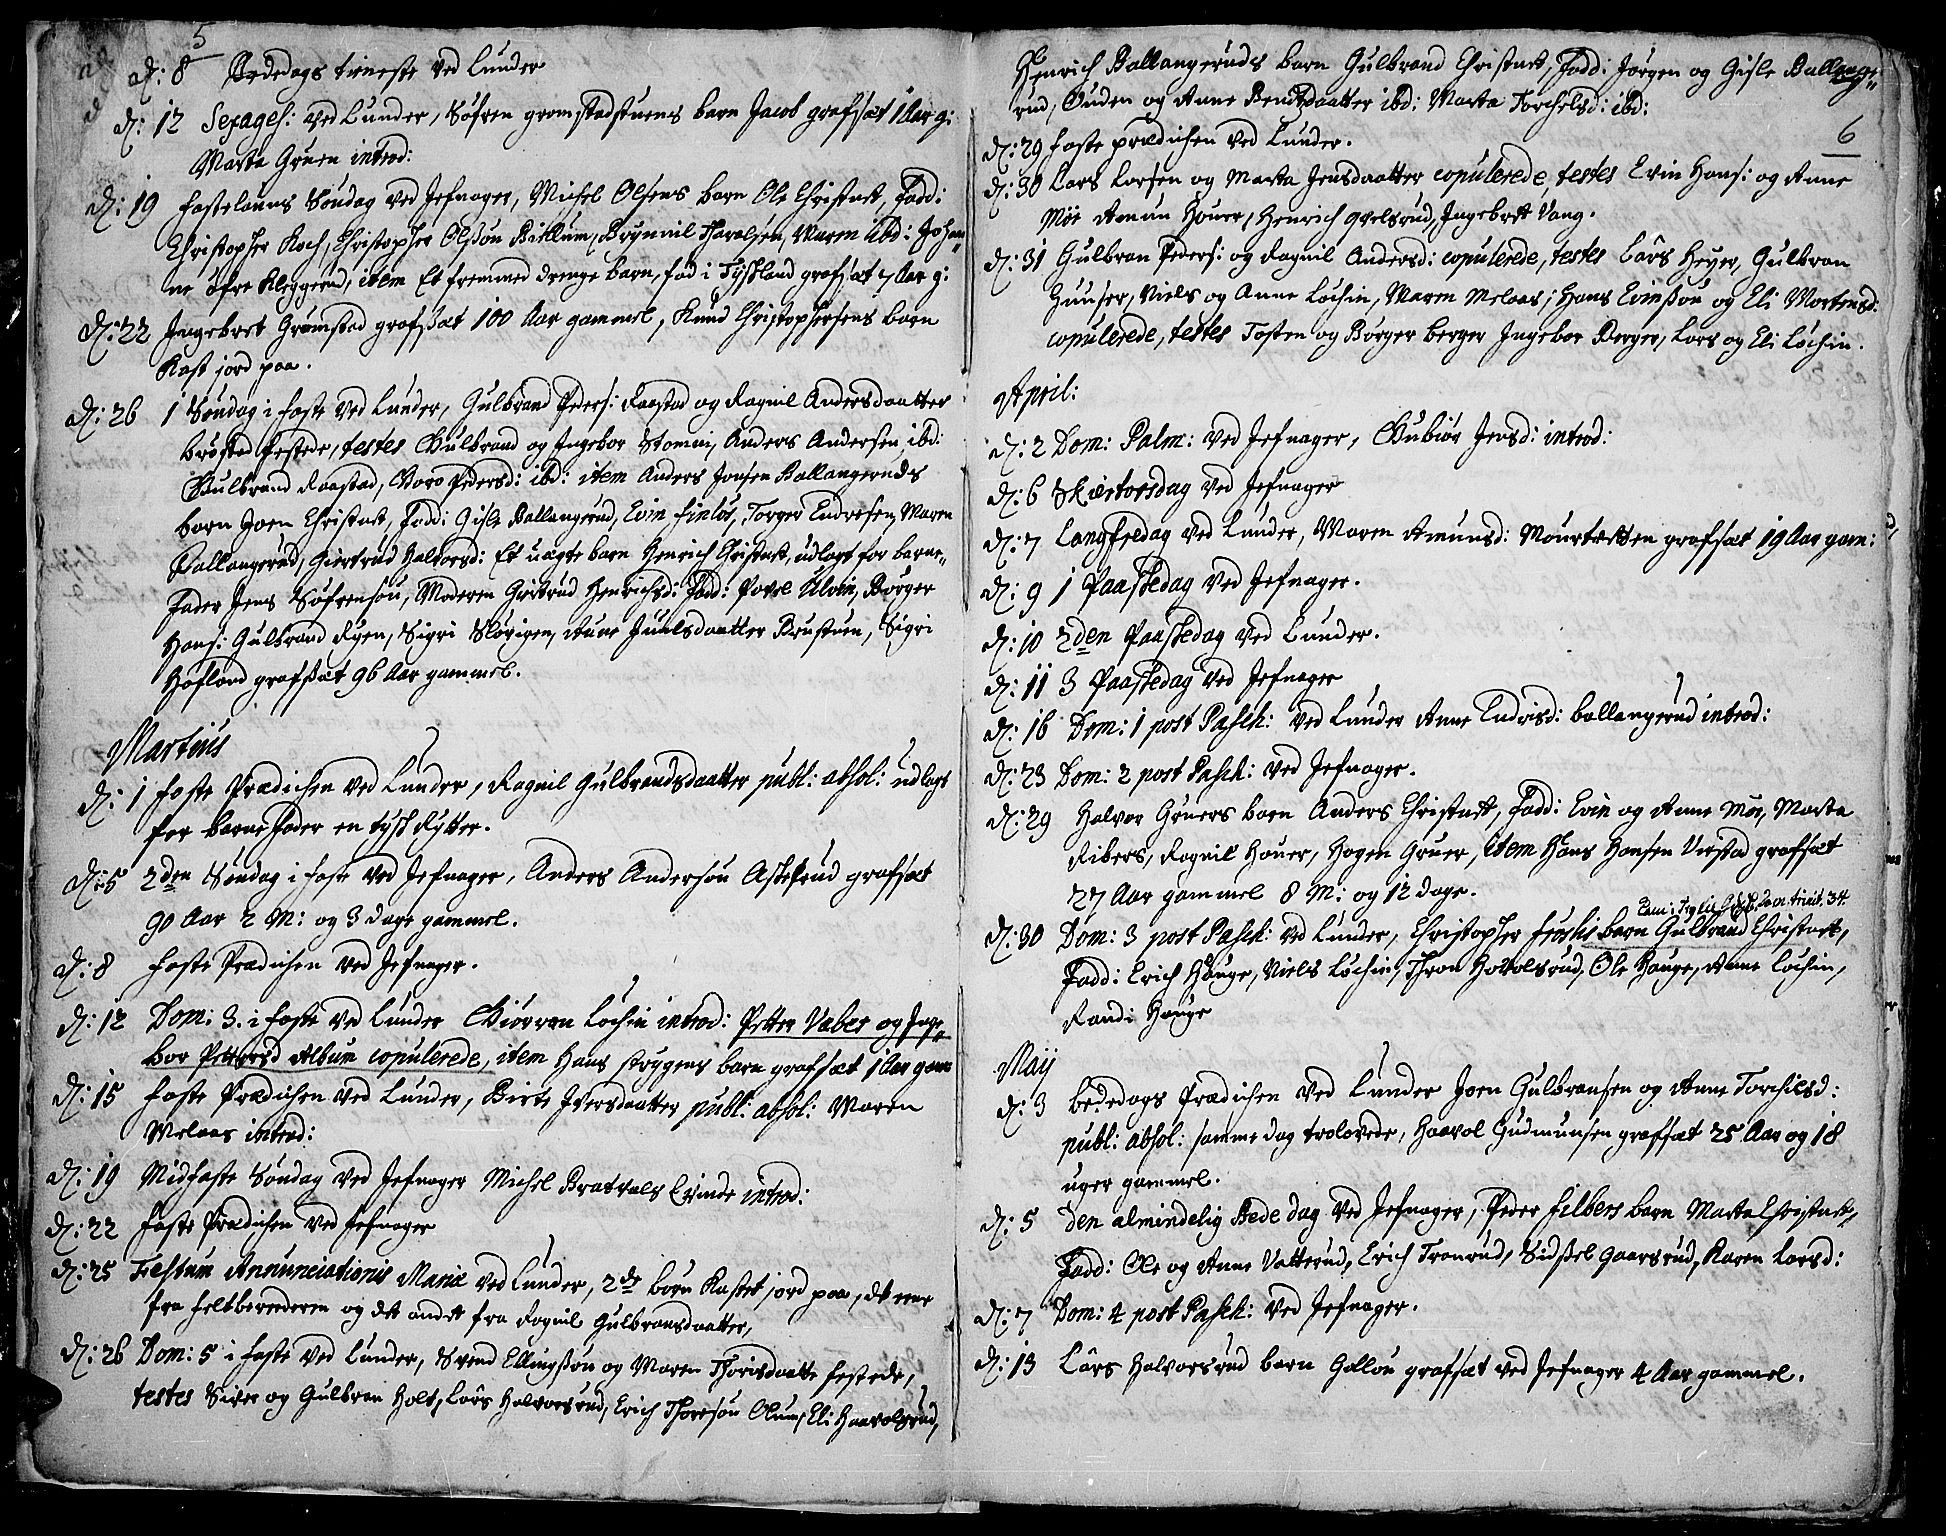 5
d: 8 Bededags tieneste ved Lunder
d: 12 Sexages: ved Lunder, Søfren gromstadstuens barn Jacob grafsat 1 Aar g:
Marta Gruen introd:
d: 19 Fastelauns Søndag ved Jefnager, Michel Olsens barn Ole Christnet, Fadd:
Christopher Koch, Christopher Olsøn Biellum, Brynnil Tharalsen, Maren ibd: Johan„
ne Øfre Kleggerud, item Et fremmed drenge barn, fød i Tyskland grafsat 7 Aar g:
d: 22 Ingebret Grømstad grafsat 100 Aar gammel, Knud Christophersens barn
Kast jord paa.
d: 26 1 Søndag i faste ved Lunder, Gulbrand Peders: Raastad og Ragnil Andersdaatter
brørstad festede, testes Gulbrand og Ingebor Stomni, Anders Andersen ibd:
Gulbrand Raastad, Goro Pedersd: ibd: item Anders Joensen Ballangeruds
barn Joen Christnet, Fadd: Gisle Ballangerud, Evin finløs, Torger Endresen, Maren
Ballangerud, Giertrud Halvorsd: Et uægte barn Henrich Christnet, udlagt for barne„
Fader Jens Søfrensøn, Moderen Giertrud Henrichsd: Fadd: Povel Ulvin, Børger
Hans: Gulbrand Ryen, Sigri Sløvigen, Anne Juulsdaatter Brustuen, Sigri
Hofland grafsat 96 Aar gammel.
Martius
d: 1 faste Prædichen ved Lunder, Ragnil Gulbrandsdaatter publ: absol: udlagt
for barne Fader en tysk Rytter.
d: 5 2den Søndag i faste ved Jefnager, Anders Andersøn Askerud grafsat
90 Aar 2 M: og 3 dage gammel.
d: 8 faste Prædichen ved Jefnager.
d: 12 Dom: 3. i faste ved Lunder Giørren Løchin introd: Petter Væber og Inge„
bor Pettersd Album copulerede, item Hans strygens barn grafsat 1 Aar gam
d: 15 faste Prædichen ved Lunder, Birte Iversdaatter publ: absol: Maren
Melaas introd:
d: 19 Midfaste Søndag ved Jefnager Michel Bratvals Qvinde introd:
d: 22 faste Prædichen ved Jefnager
d: 25 Festum Annunciationis Mariæ ved Lunder, 2de børn Kastet jord paa, det ene
fra feltberederen og det andet fra Ragnil Gulbransdaatter,
d: 26 Dom: 5 i faste ved Lunder, Svend Ellingssøn og Maren Thorisdaatte festede,
testes Siver og Gulbran Holt, Lårs Halvorsrud, Erich Thoresøn Olum, Eli Haavolsrud,
Henrich Ballangeruds barn Gulbrand Christnet, Fadd: Jørgen og Gisle Ballange„
rud, Guden og Anne Bendtsdaatter ibd: Marta Torchelsd: ibd:
6
d: 29 faste prædichen ved Lunder.
d: 30 Lars Larsen og Marta Jensdaatter copulerede, testes Evin Hans: og Anne
Moe Amun Houer, Henrich Gvelsrud, Ingebret Vang.
d: 31 Gulbran Peders: og Ragnil Andersd: copulerede, testes Lårs Heyer, Gulbran
Huuser, Niels og Anne Løchin, Maren Melaas; Hans Evinssøn og Eli Mortensd:
copulerede, testes Tosten og Børger berger Ingebor Berger, Lars og Eli Løchin.
April:
d: 2 Dom: Palm: ved Jefnager, Gubiør Jensd: introd:
d: 6 Skiertorsdag ved Jefnager
d: 7 Langfredag ved Lunder, Maren Amunsd: Mourtvetten grafsat 19 Aar gam:
d: 9 1 Paaskedag ved Jefnager.
d: 10 2den Paaskedag ved Lunder.
d: 11 3 Paaskedag ved Jefnager
d: 16 Dom: 1 post Pasch: ved Lunder Anne Endrisd: ballangerud introd:
d: 23 Dom: 2 post Pasch: ved Jefnager.
d: 29 Halvor Gruers barn Anders Christnet, Fadd: Evin og Anne Moe, Marta
Ribers, Ragnil Houer, Hagen Gruer, item Hans Hansen Virstad grafsat
27 Aar gammel 8 M: og 12 dage.
d: 30 Dom: 3 post Pasch: ved Lunder, Christopher froshis barn Gulbrand Christnet,
Fadd: Erich Hauge, Niels Løchin, Thron Hovolsrud, Ole Hauge, Anne Løchin,
Randi Hauge
Maij
d: 3 bededags Prædichen ved Lunder Joen Gulbransen og Anne Torchilsd:
publ: absol: samme dag trolovede, Haavol Gudmunsen grafsat 25 Aar og 18
uger gammel.
d: 5 den almindelig Bede dag ved Jefnager, Peder filbers barn Marta Christnet,
Fadd: Ole og Anne Vatterud, Erich Tronrud, Sidssel Gaarsrud, Karen Larsd:
d: 7 Dom: 4 post Pasch: ved Jefnager.
d: 13 Lårs Halvorsrud barn Gollou grafsat ved Jefnager 4 Aar gammel.